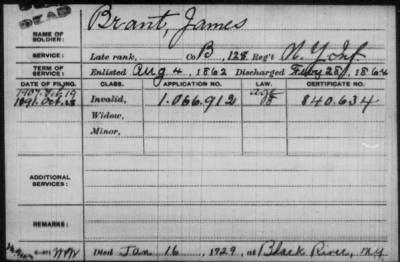 DEAD
NAME OF SOLDIER: Brant, James
SERVICE: Late rank, Co B, 128 Reg't N.Y. Inf.
TERM OF SERVICE: Enlisted Aug 4, 1862 Discharged 28, 1864
DATE OF FILING. CLASS. APPLICATION NO. LAW. CERTIFICATE NO.
1907
1891. Oct. Invalid, 1.066.912 age 840.634
Widow,
Minor,
ADDITIONAL SERVICES:
REMARKS:
Died Jan 16, 1929, at Black River, N.Y.